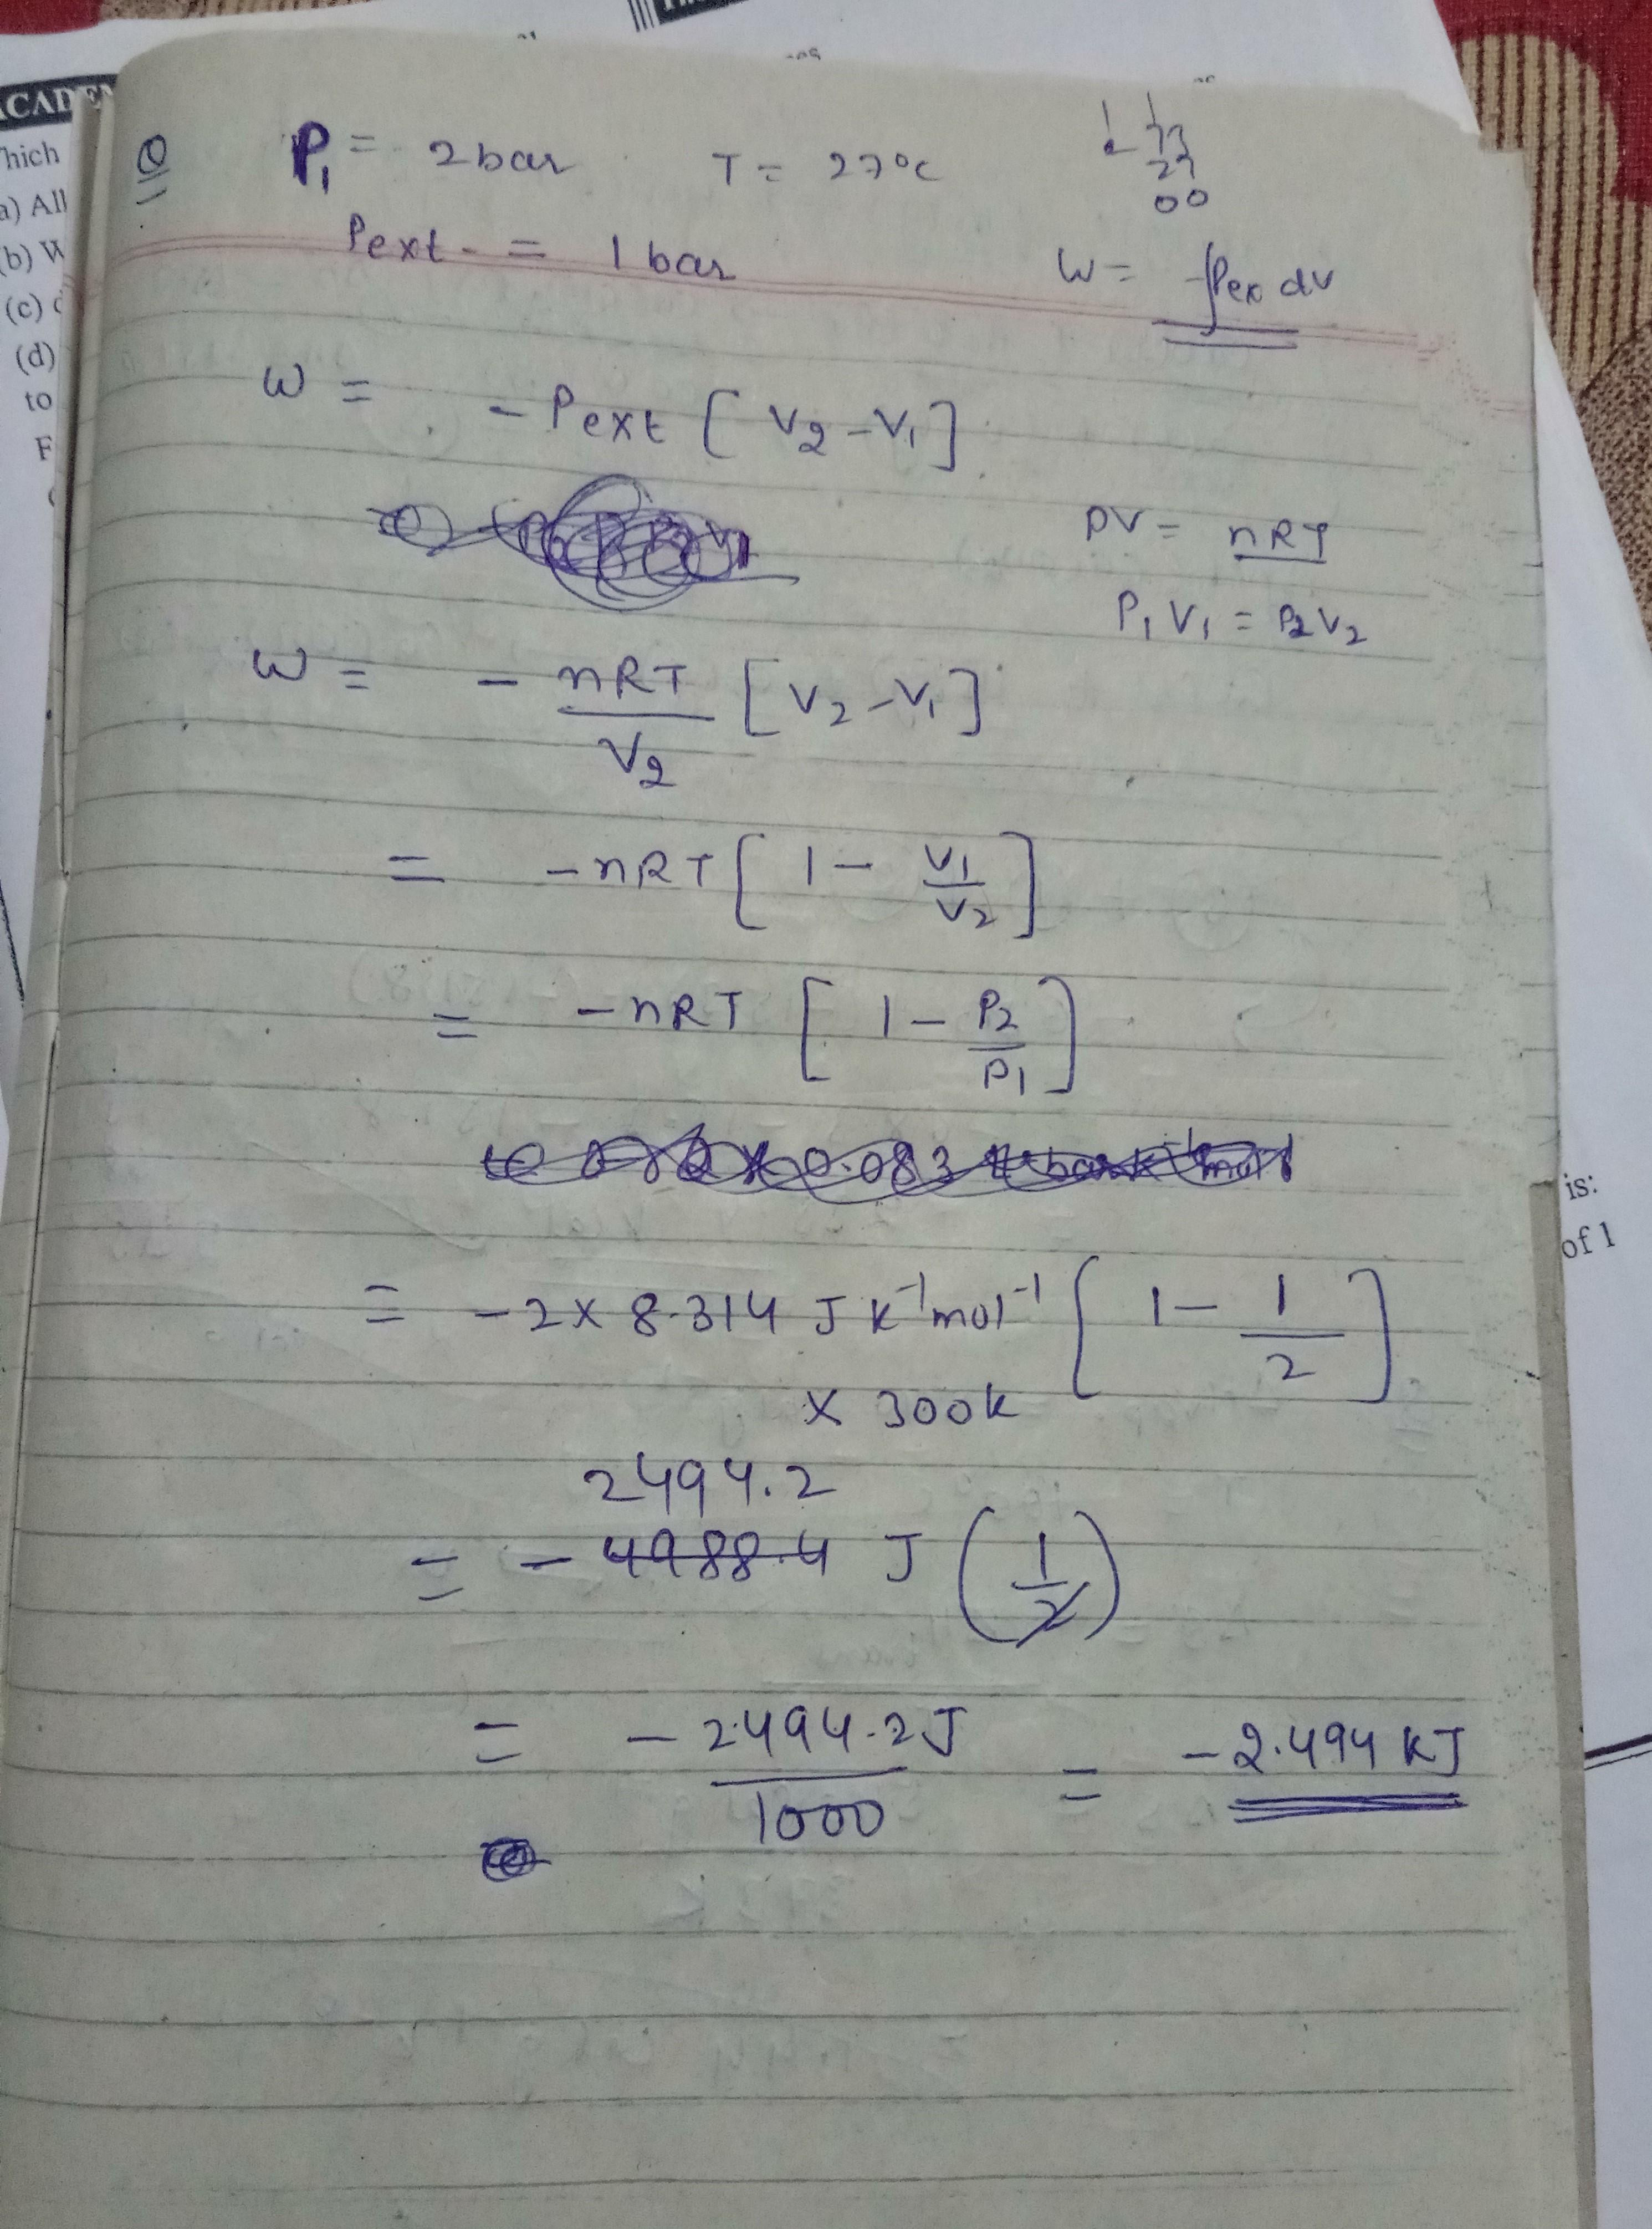 ACADE
hich
a) All
(b) W
(c)
(d)
to
F
Q P₁ = 2 bar T = 27°C
273
27
00
Pext. = 1 bar
W = -∫Pex dv
W = - Pext [V₂-V₁]
PV = nRT
P₁V₁ = P₂V₂
W = - nRT/V₂ [V₂-V₁]
= -nRT [1 - V₁/V₂]
= -nRT [1 - P₂/P₁]
= -2 x 8.314 J K⁻¹ mol⁻¹ [1 - 1/2]
x 300K
2494.2
= - 4988.4 J (1/2)
= - 2494.2 J/1000 = -2.494 KJ
is:
of 1